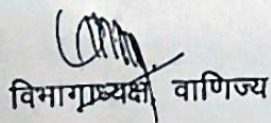 विभागाध्यक्ष वाणिज्य